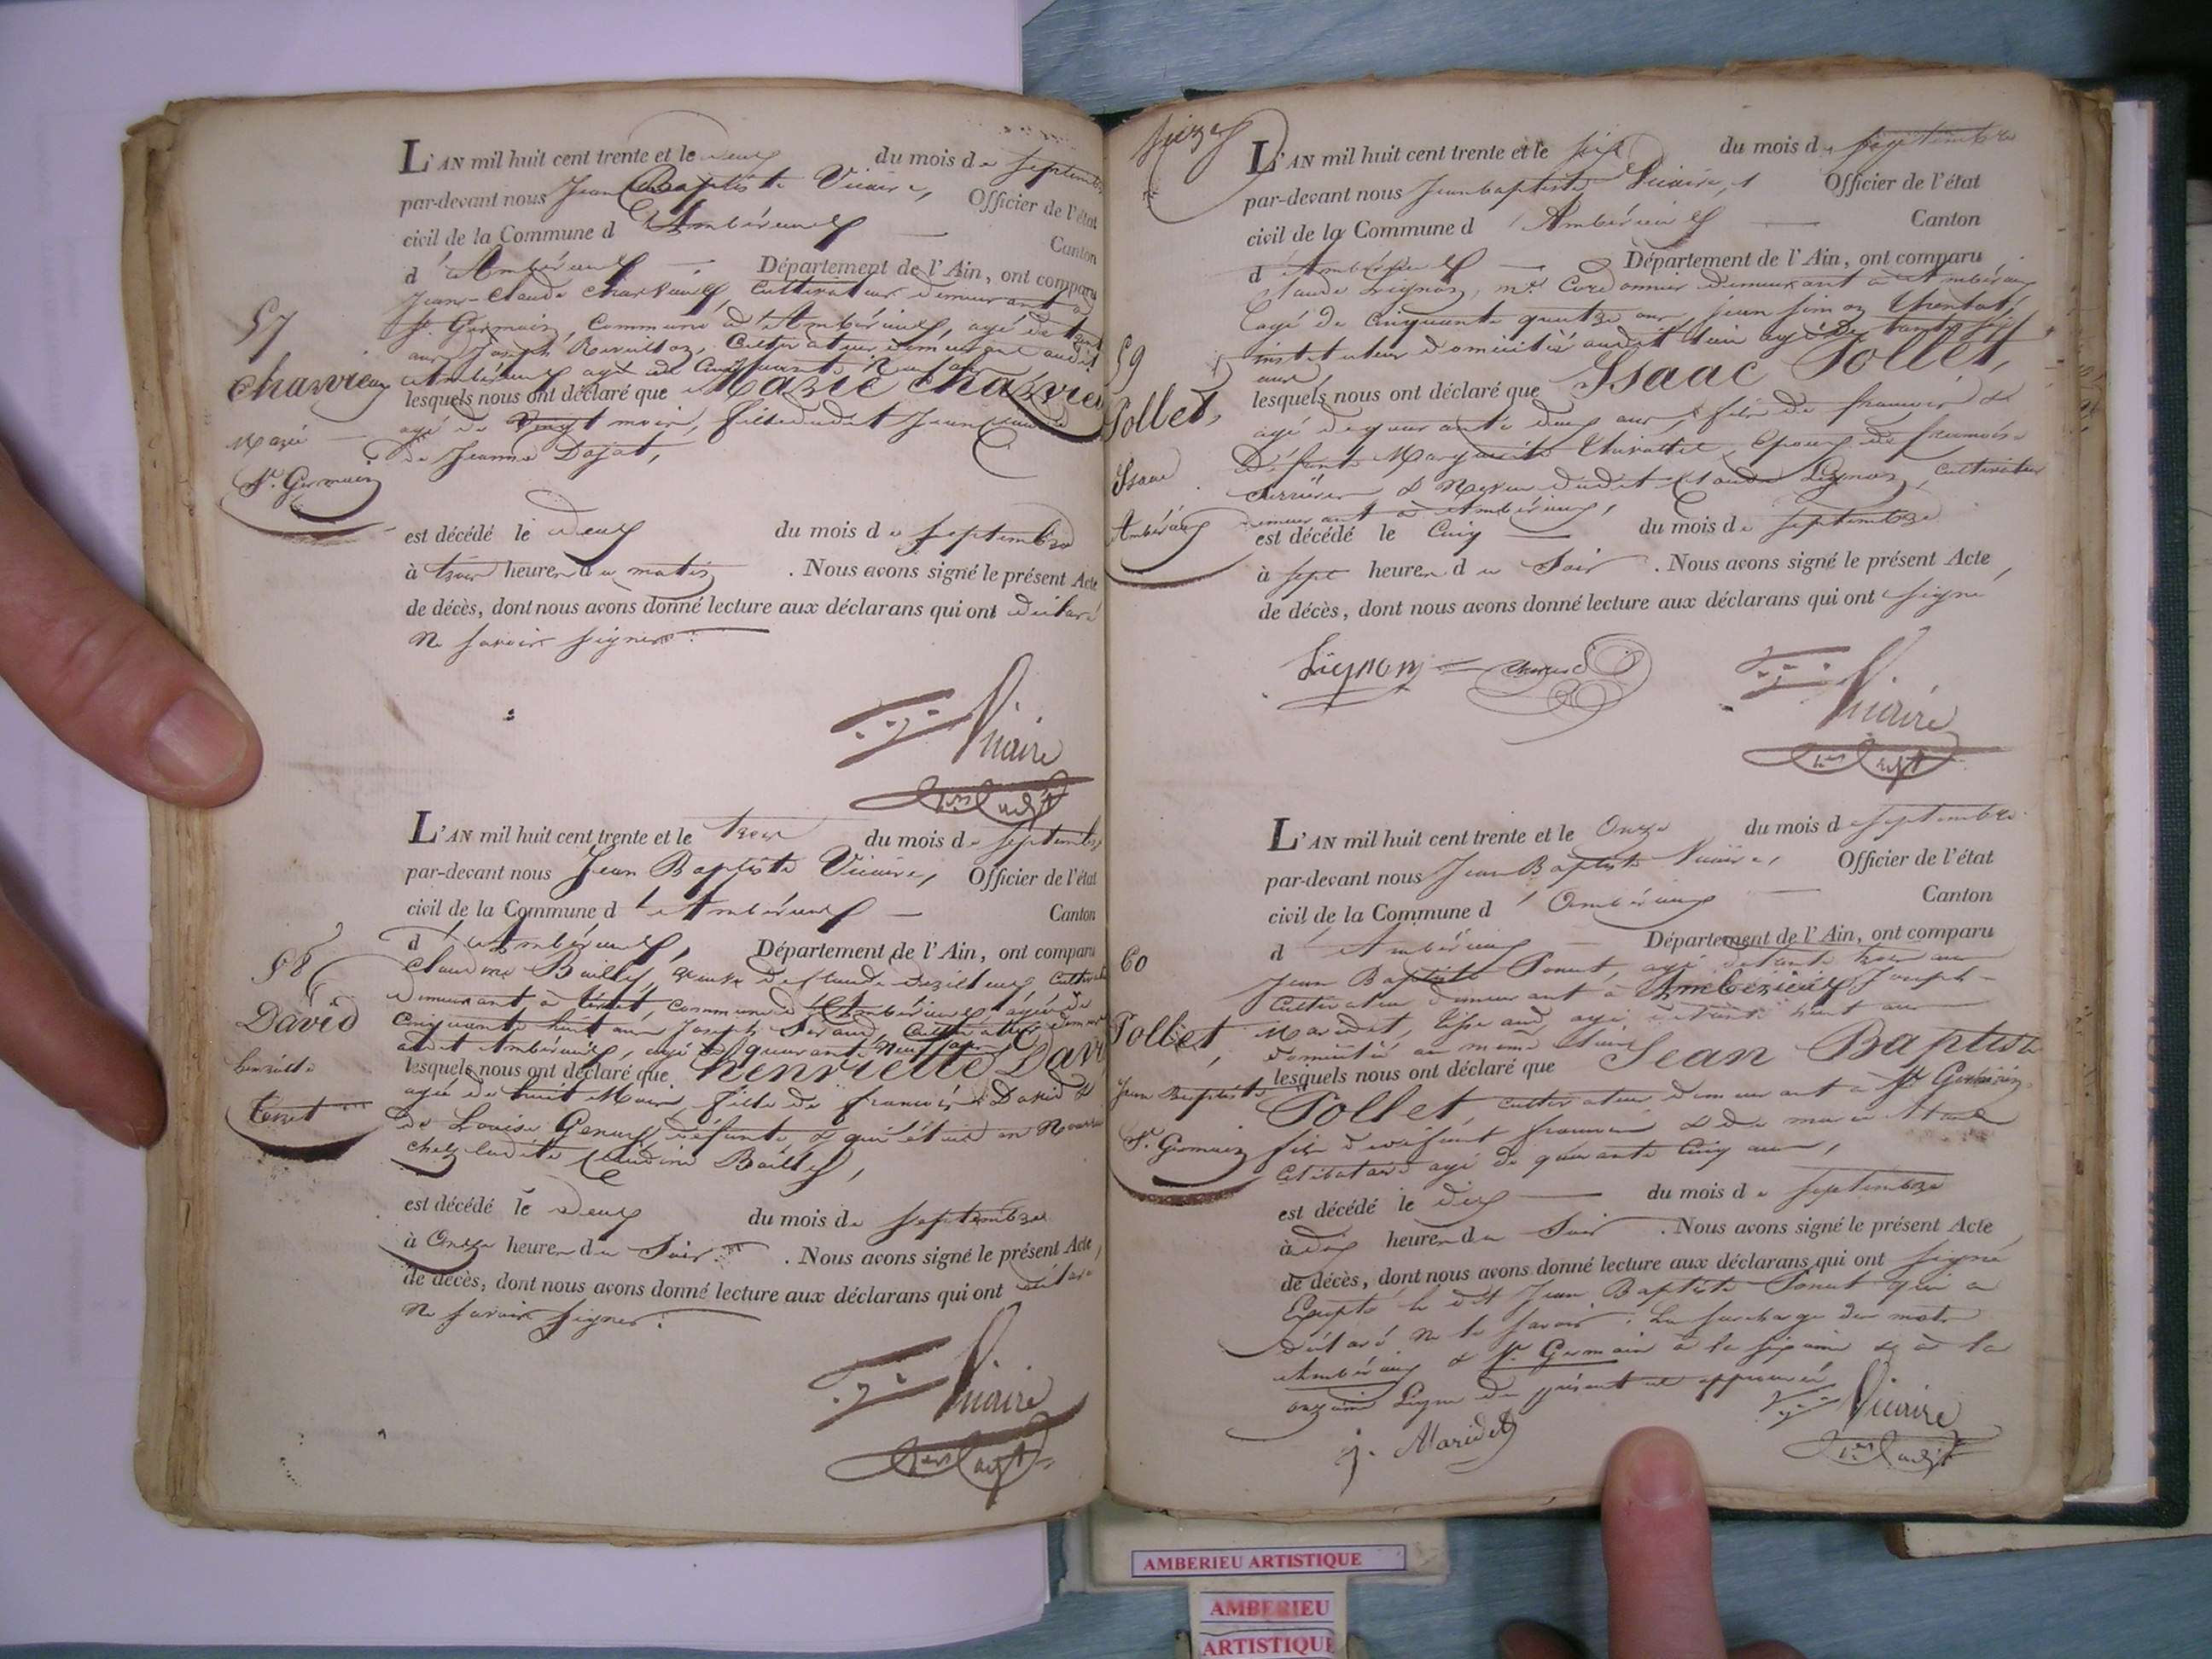 L'AN mil huit cent trente et le deux du mois de septembre
par-devant nous Jean Baptiste Vicaire, Officier de l'état
civil de la Commune d'Ambérieux — Canton
d'Ambérieux — Département de l'Ain, ont comparu
Jean-Claude Charvieux, Cultivateur demeurant à
St. Germain, Commune d'Ambérieux, agé de
ans Joseph Revillon, Cultivateur demeurant audit
Ambérieux agé de Cinquante Neuf ans
lesquels nous ont déclaré que Marie Charvieu
agé de Vingt mois, fille dudit Jean Claude
de Jeanne Dojat,
57
Charvieux
Marie
St. Germain
est décédé le deux du mois de septembre
à trois heures du matin . Nous avons signé le présent Acte
de décès, dont nous avons donné lecture aux déclarans qui ont déclaré
Ne savoir signer.
Vicaire
L'AN mil huit cent trente et le trois du mois de septembre
par-devant nous Jean Baptiste Vicaire, Officier de l'état
civil de la Commune d'Ambérieux — Canton
d'Ambérieux, Département de l'Ain, ont comparu
Claudine Bailly, épouse de Claude
demeurant à Tiret, commune d'Ambérieux, agée de
Cinquante huit ans Joseph Seraud, Cultivateur demeur
audit Ambérieux, agé de quarante Neuf ans
lesquels nous ont déclaré que henriette Davi
agée de huit Mois, fille de françois David &
de Louise Genoux, défunte, & qui était en Nourrice
chez ladite Claudine Bailly,
58
David
henriette
tiret
est décédé le deux du mois de septembre
à Onze heures du Soir . Nous avons signé le présent Acte,
de décès, dont nous avons donné lecture aux déclarans qui ont déclaré
Ne savoir signer.
Vicaire
L'AN mil huit cent trente et le six du mois de septembre
par-devant nous Jean baptiste Vicaire, Officier de l'état
civil de la Commune d'Ambérieux — Canton
d'Ambérieux — Département de l'Ain, ont comparu
Claude Lignon, md. Cordonnier demeurant à Ambérieux
agé de Cinquante quatre ans, jean simon
instituteur domicilié audit lieu agé de trente six
ans,
lesquels nous ont déclaré que Isaac Pollet,
agé de quarante deux ans, fils de françois &
défunte Marguerite époux de françoise
& Neveu dudit Claude Lignon, Cultivateur
demeurant à Ambérieux,
59
Pollet,
Isaac
Ambérieux
est décédé le Cinq — du mois de septembre
à sept heures du Soir . Nous avons signé le présent Acte,
de décès, dont nous avons donné lecture aux déclarans qui ont signé
Lignon
Vicaire
L'AN mil huit cent trente et le Onze du mois de septembre
par-devant nous Jean Baptiste Vicaire, Officier de l'état
civil de la Commune d'Ambérieux — Canton
d'Ambérieux — Département de l'Ain, ont comparu
Jean Baptiste Bonnet, agé de trente trois ans
Cultivateur demeurant à Ambérieux Joseph-
Maridet, tisserand, agé de trente huit ans
domicilié au même lieu
lesquels nous ont déclaré que Jean Baptiste
Pollet, cultivateur demeurant à St. Germain
fils de défunt françois & de marie
Célibataire agé de quarante Cinq ans,
60
Pollet,
Jean Baptiste
St. Germain
est décédé le dix — du mois de septembre
à dix heures du Soir . Nous avons signé le présent Acte
de décès, dont nous avons donné lecture aux déclarans qui ont signé
Excepté le dit Jean Baptiste Bonnet qui a
déclaré Ne le savoir : La surcharge des mots
Ambérieux & St. Germain à la sixième & à la
onzième Ligne du présent est approuvée
Vicaire
j. Maridet
AMBERIEU ARTISTIQUE
AMBERIEU
ARTISTIQUE